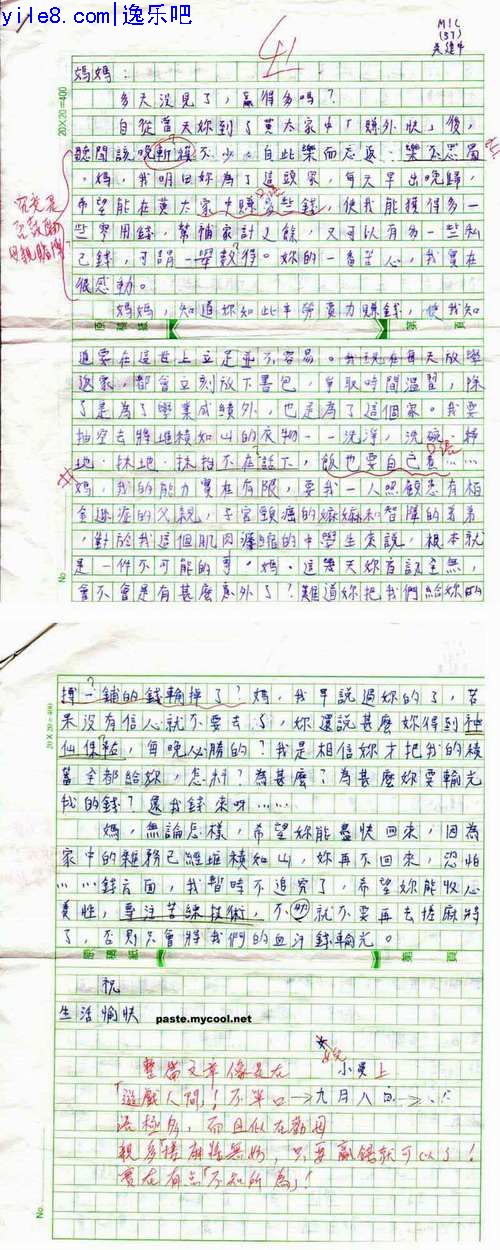 yile8.com|逸乐吧
M1C
(37)
41
20X20=400
媽媽：
多天沒見了，贏得多嗎？
自從當天妳到了黃太家中「賺外快」後，
聽聞說晚斬獲不少。自此樂而忘返，樂不思蜀
。媽，我明白妳為了這頭家，每天早出晚歸，
希望能在黃太家中賺多些錢，使我能獲得多一
些零用錢，幫補家計之餘，又可以有多一些私
己錢，可謂一舉數得。妳的一番苦心，我實在
很感動。
媽媽，知道妳如此辛勞賣力賺錢，使我知
原稿紙 第 頁
道要在這世上立足並不容易。我現在每天放學
還家，都會立刻放下書包，爭取時間溫習，除
了是為了學業成績外，也是為了這個家。我要
抽空去將堆積如山的衣物一一洗淨，洗碗、掃
地、抹地、抹枱不在話下，飯也要自己煮……
媽，我的能力實在有限，要我一人照顧患有柏
金遜症的父親，子宮頸癌的嫲嫲和智障的弟弟
，對於我這個肌肉萎縮的中學生來說，根本就
是一件不可能的事。媽。這幾天妳音訊全無，
會不會是有甚麼意外了？難道妳把我們給妳的
No.
20X20=400
搏一鋪的錢輸掉了？媽，我早說過妳的了，若
果沒有信人就不要去了，妳還說甚麼妳得到神
仙保祐，每晚必勝的？我是相信妳才把我的積
蓄全都給妳，怎料？為甚麼？為甚麼妳要輸光
我的錢？還我錢來呀……
媽，無論怎樣，希望妳能盡快回來，因為
家中的雜務已經堆積如山，妳再不回來，恐怕
……錢方面，我暫時不追究了，希望妳能收心
養性，專注苦練技術，不然就不要再去搓麻將
了，否則只會將我們的血汗錢輸光。
原稿紙 第 頁
祝
生活愉快
paste.mycool.net
小吳上
九月八日
整篇文章像是在
「遊戲人間」！不單口
法極多，而且似在勸母
親多「搓麻雀無妨，只要贏錢就可以了！
實在有点「不知所為」！
No.